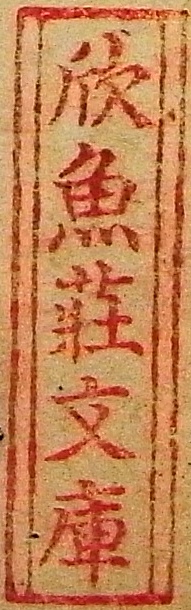 欣魚莊文庫